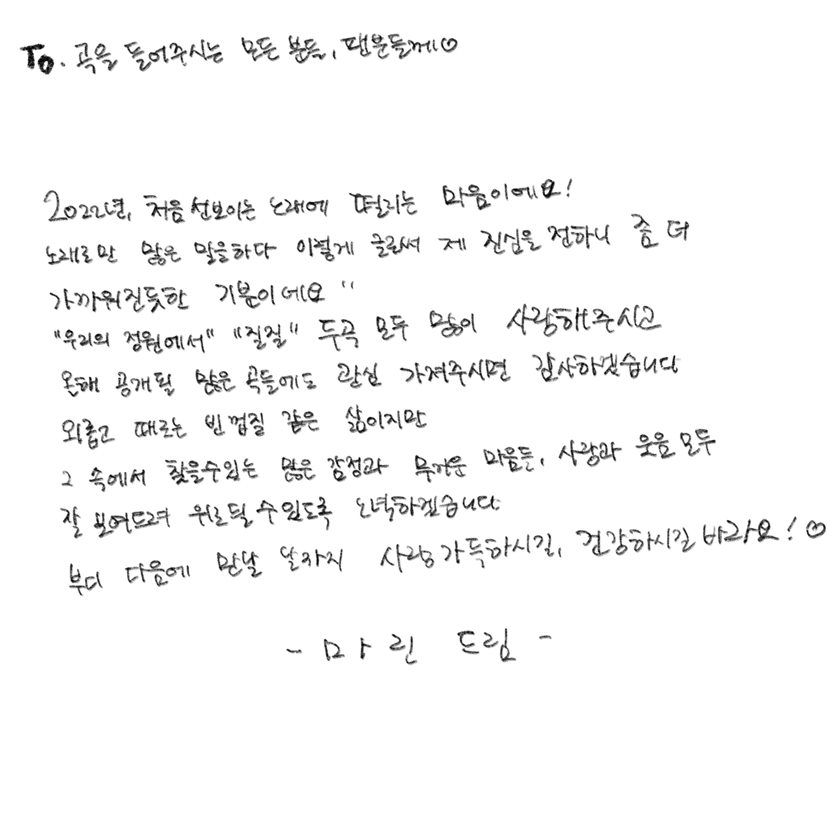 To. 곡을 들어주시는 모든 분들, 팬분들께♡
2022년, 처음 선보이는 노래에 떨리는 마음이에요!
노래로만 많은 말을하다 이렇게 글로써 제 진심을 전하니 좀 더
가까워진듯한 기분이네요 "
"우리의 정원에서" "질질" 두곡 모두 많이 사랑해주시고
올해 공개될 많은 곡들에도 관심 가져주시면 감사하겠습니다
외롭고 때로는 빈껍질 같은 삶이지만
그 속에서 찾을수있는 많은 감정과 무거운 마음들, 사랑과 웃음 모두
잘 보여드려 위로될 수 있도록 노력하겠습니다
부디 다음에 만날 날까지 사랑 가득하시길, 건강하시길 바라요! ♡
- 마린 드림 -